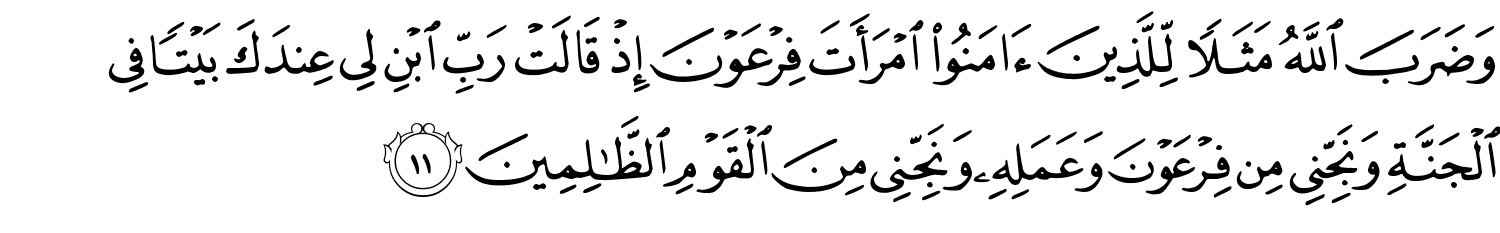 وَضَرَبَ ٱللَّهُ مَثَلًا لِّلَّذِينَ ءَامَنُوا۟ ٱمْرَأَتَ فِرْعَوْنَ إِذْ قَالَتْ رَبِّ ٱبْنِ لِى عِندَكَ بَيْتًا فِى
ٱلْجَنَّةِ وَنَجِّنِى مِن فِرْعَوْنَ وَعَمَلِهِۦ وَنَجِّنِى مِنَ ٱلْقَوْمِ ٱلظَّـٰلِمِينَ ١١